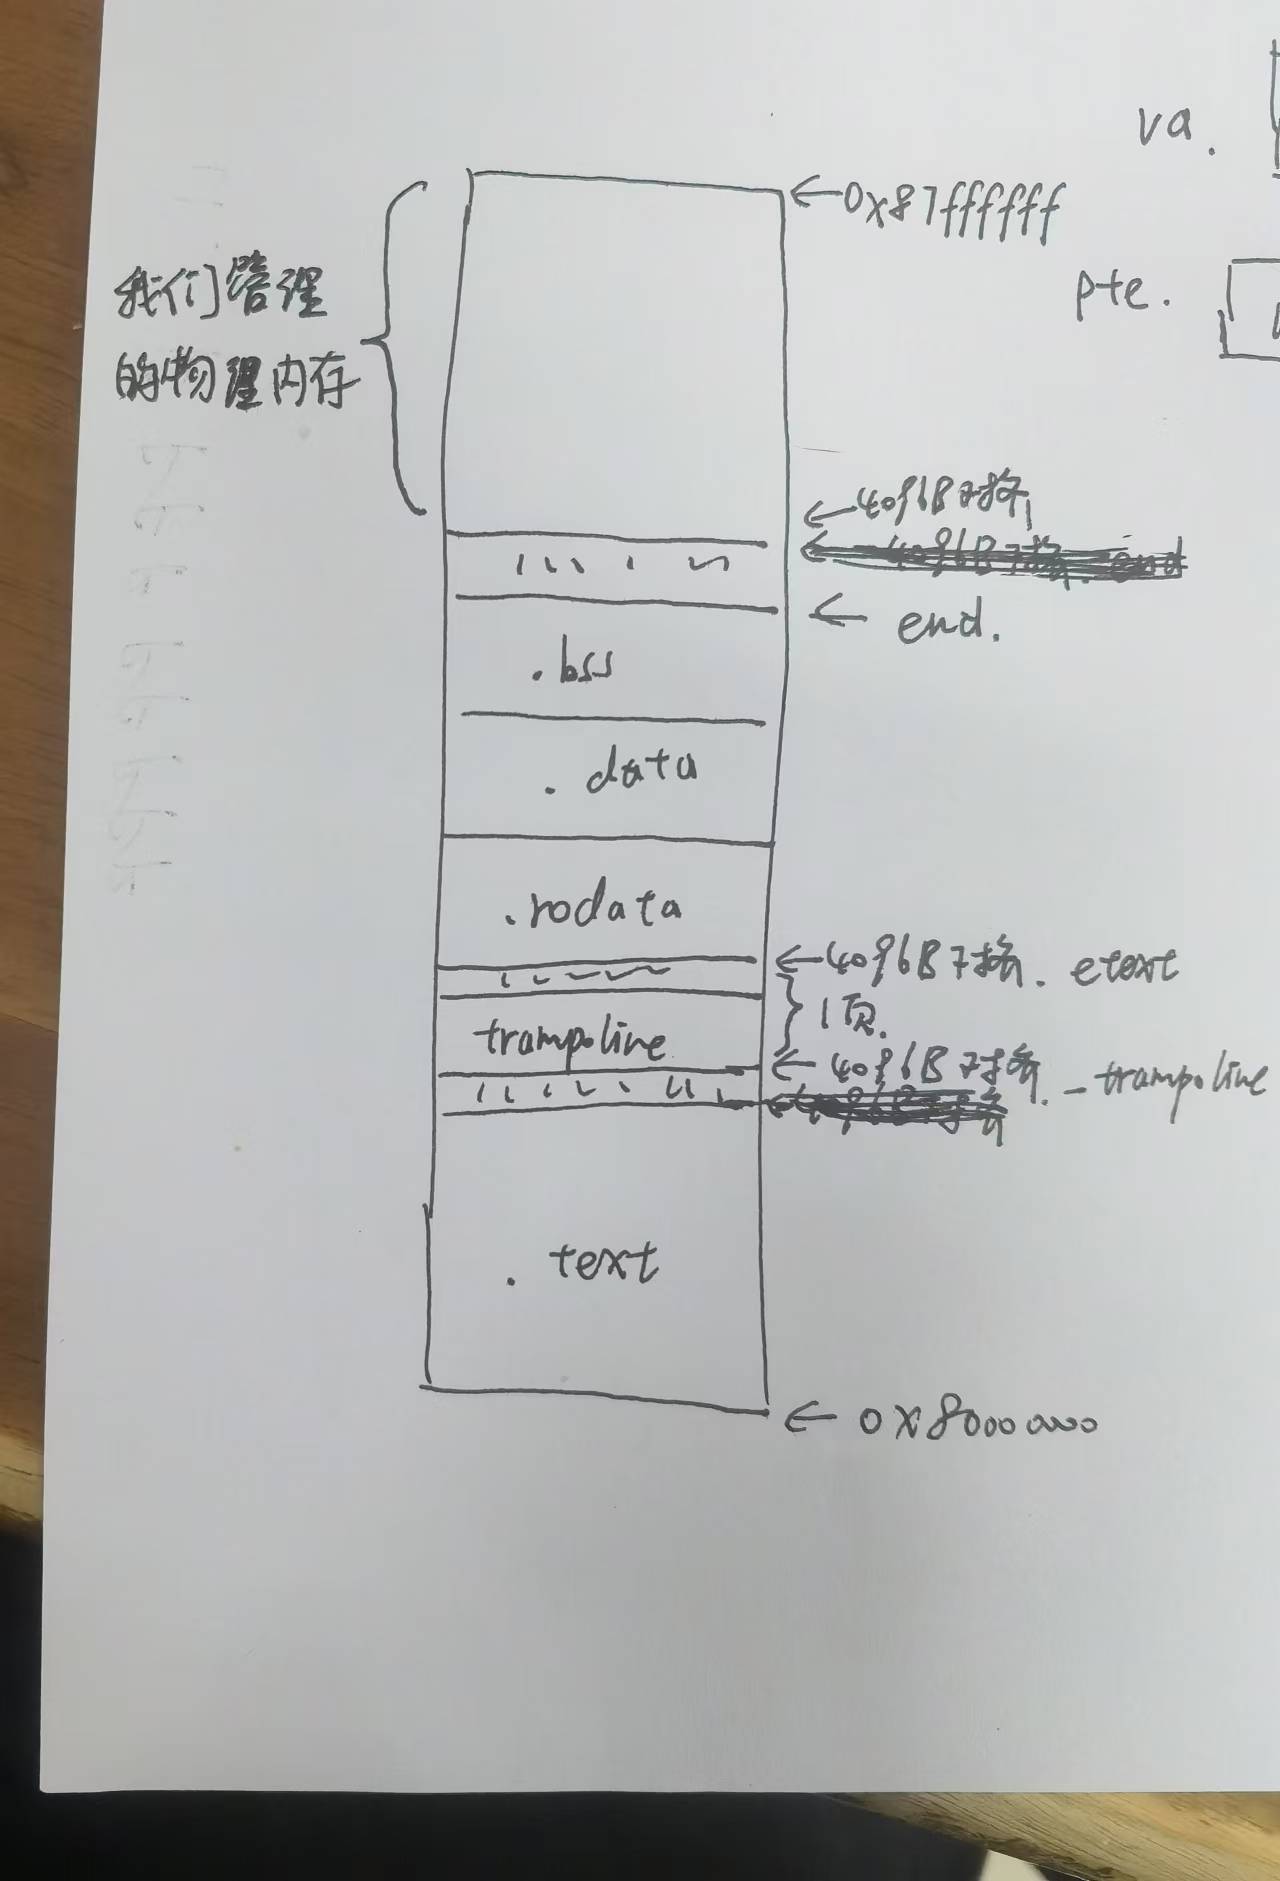 va.
←0x87ffffff
我们管理
的物理内存
pte.
←4096B对齐
← end.
.bss
.data
.rodata
←4096B对齐. etext
1页.
trampoline
←4096B对齐. _trampoline
.text
← 0x80000000